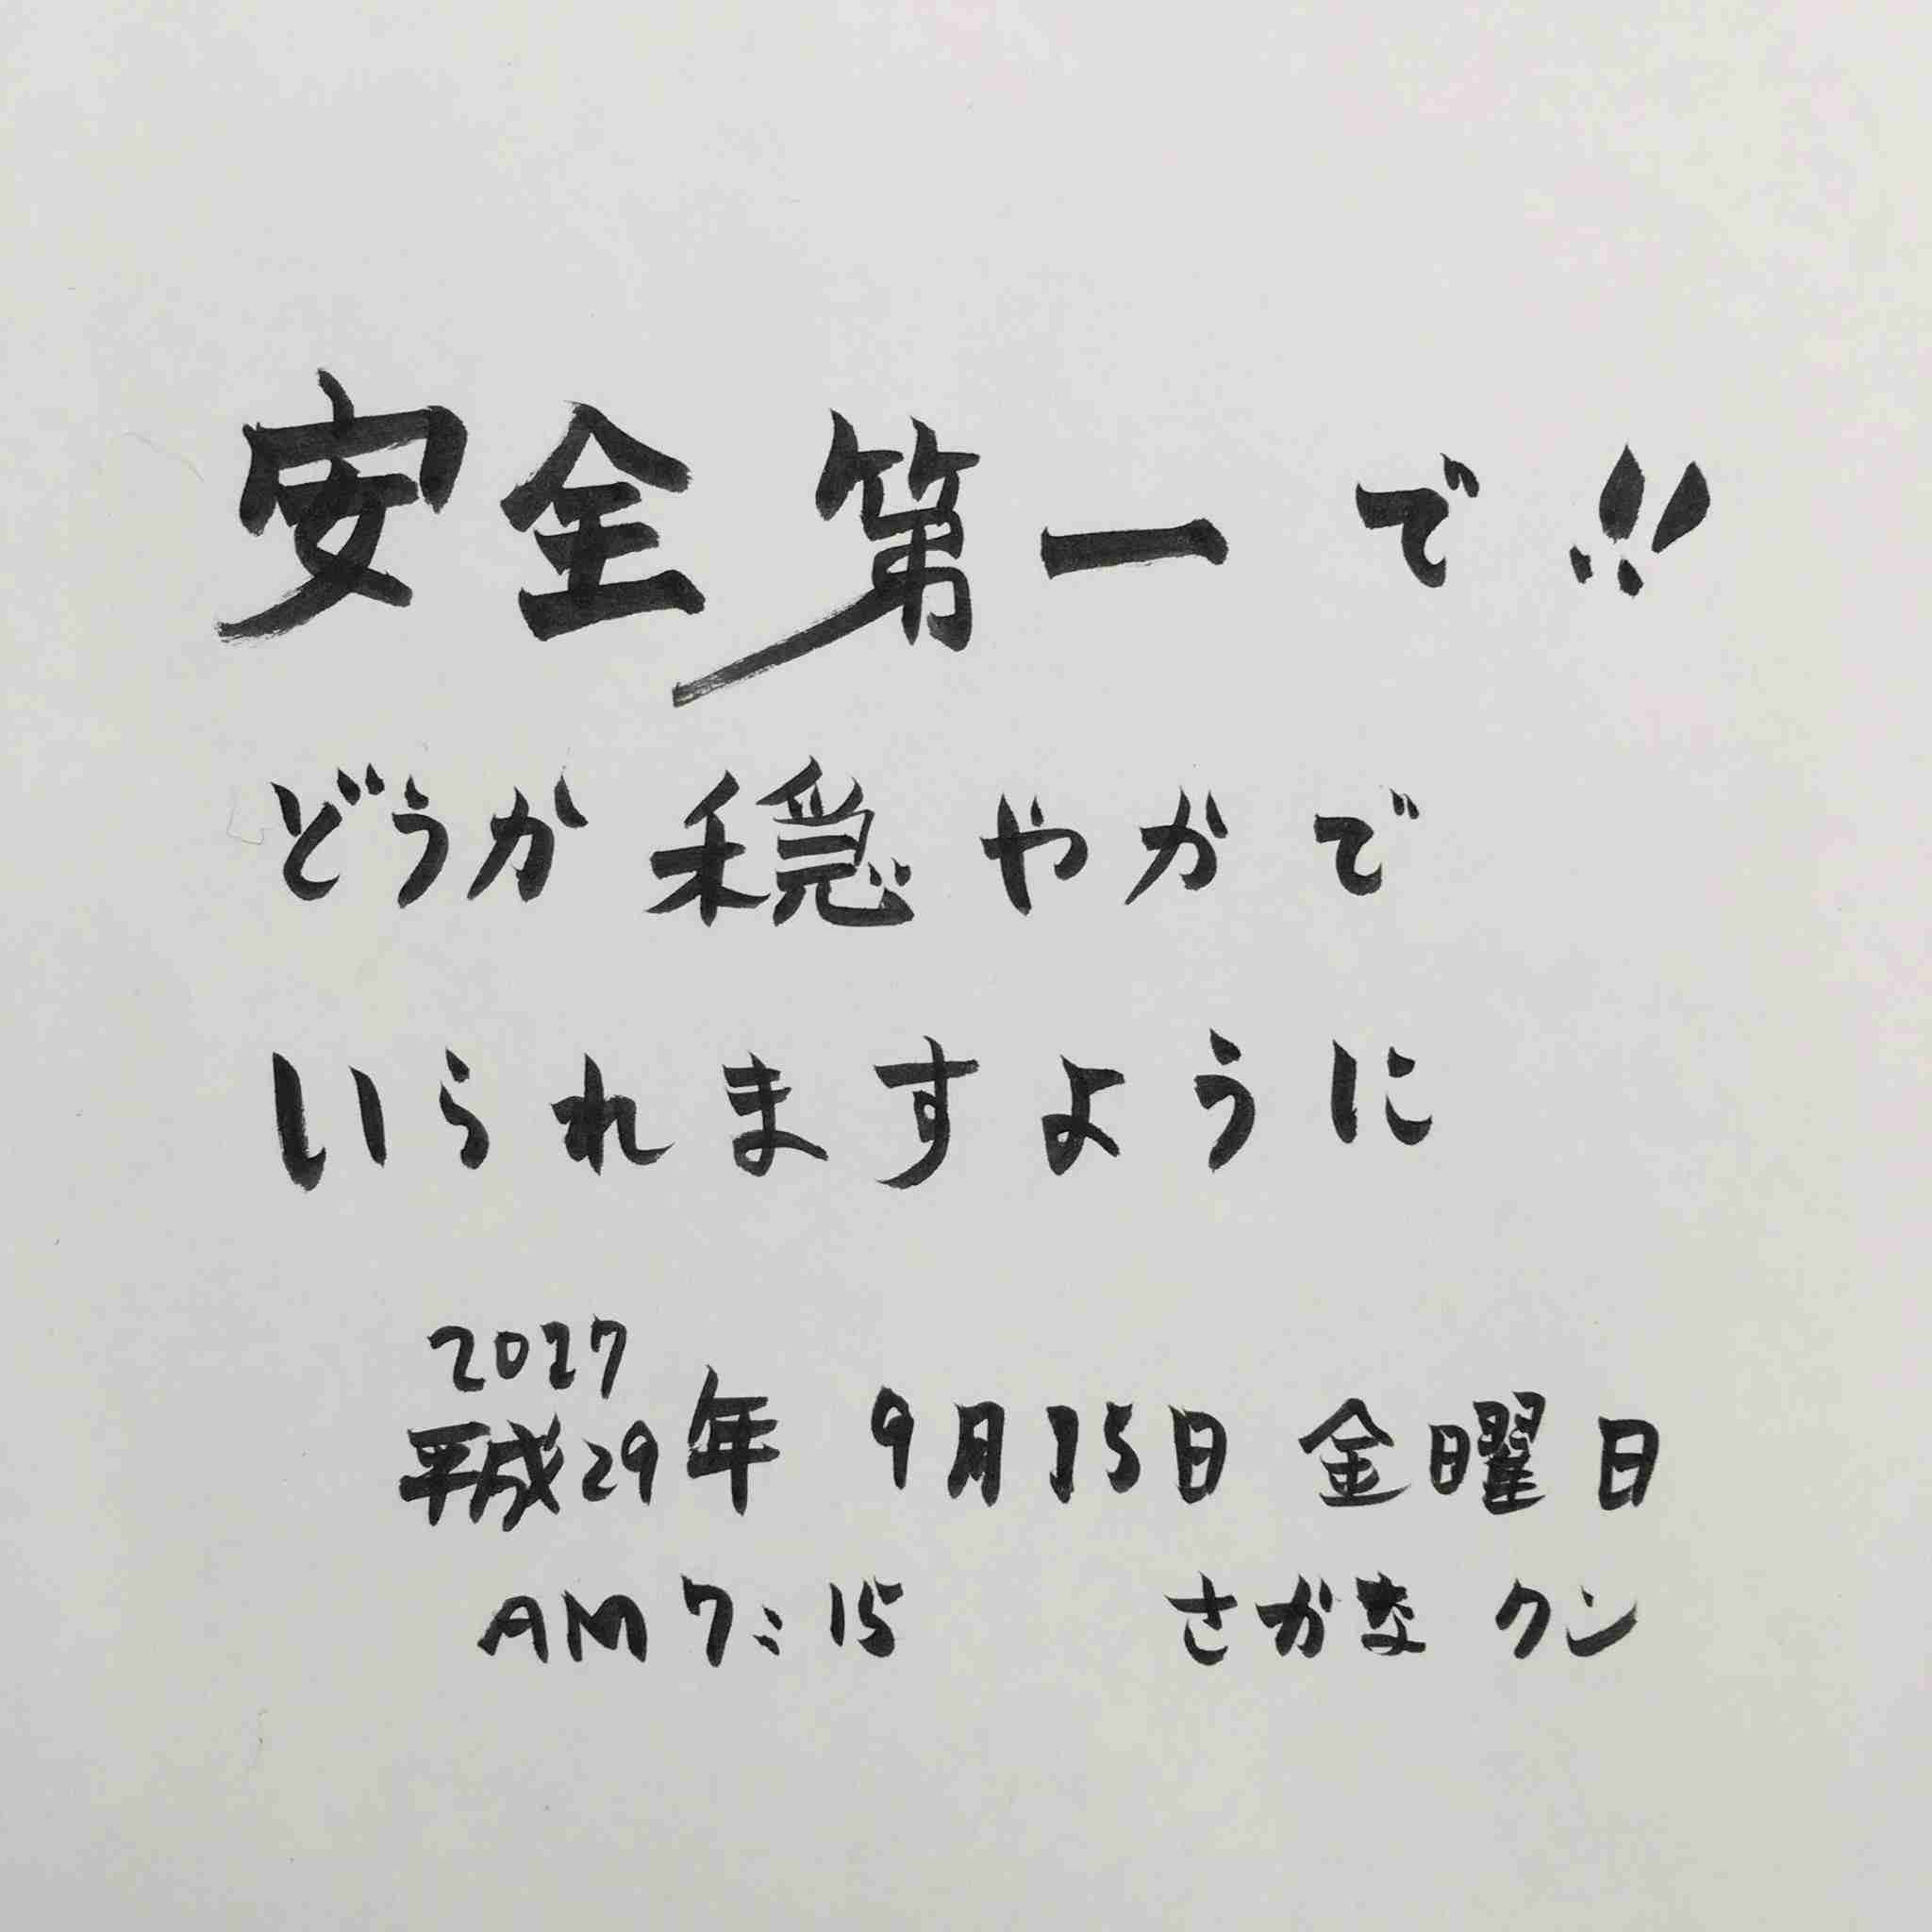 安全第一で!!
どうか穏やかで
いられますように
2017
平成29年 9月15日 金曜日
AM 7:15 さかなクン